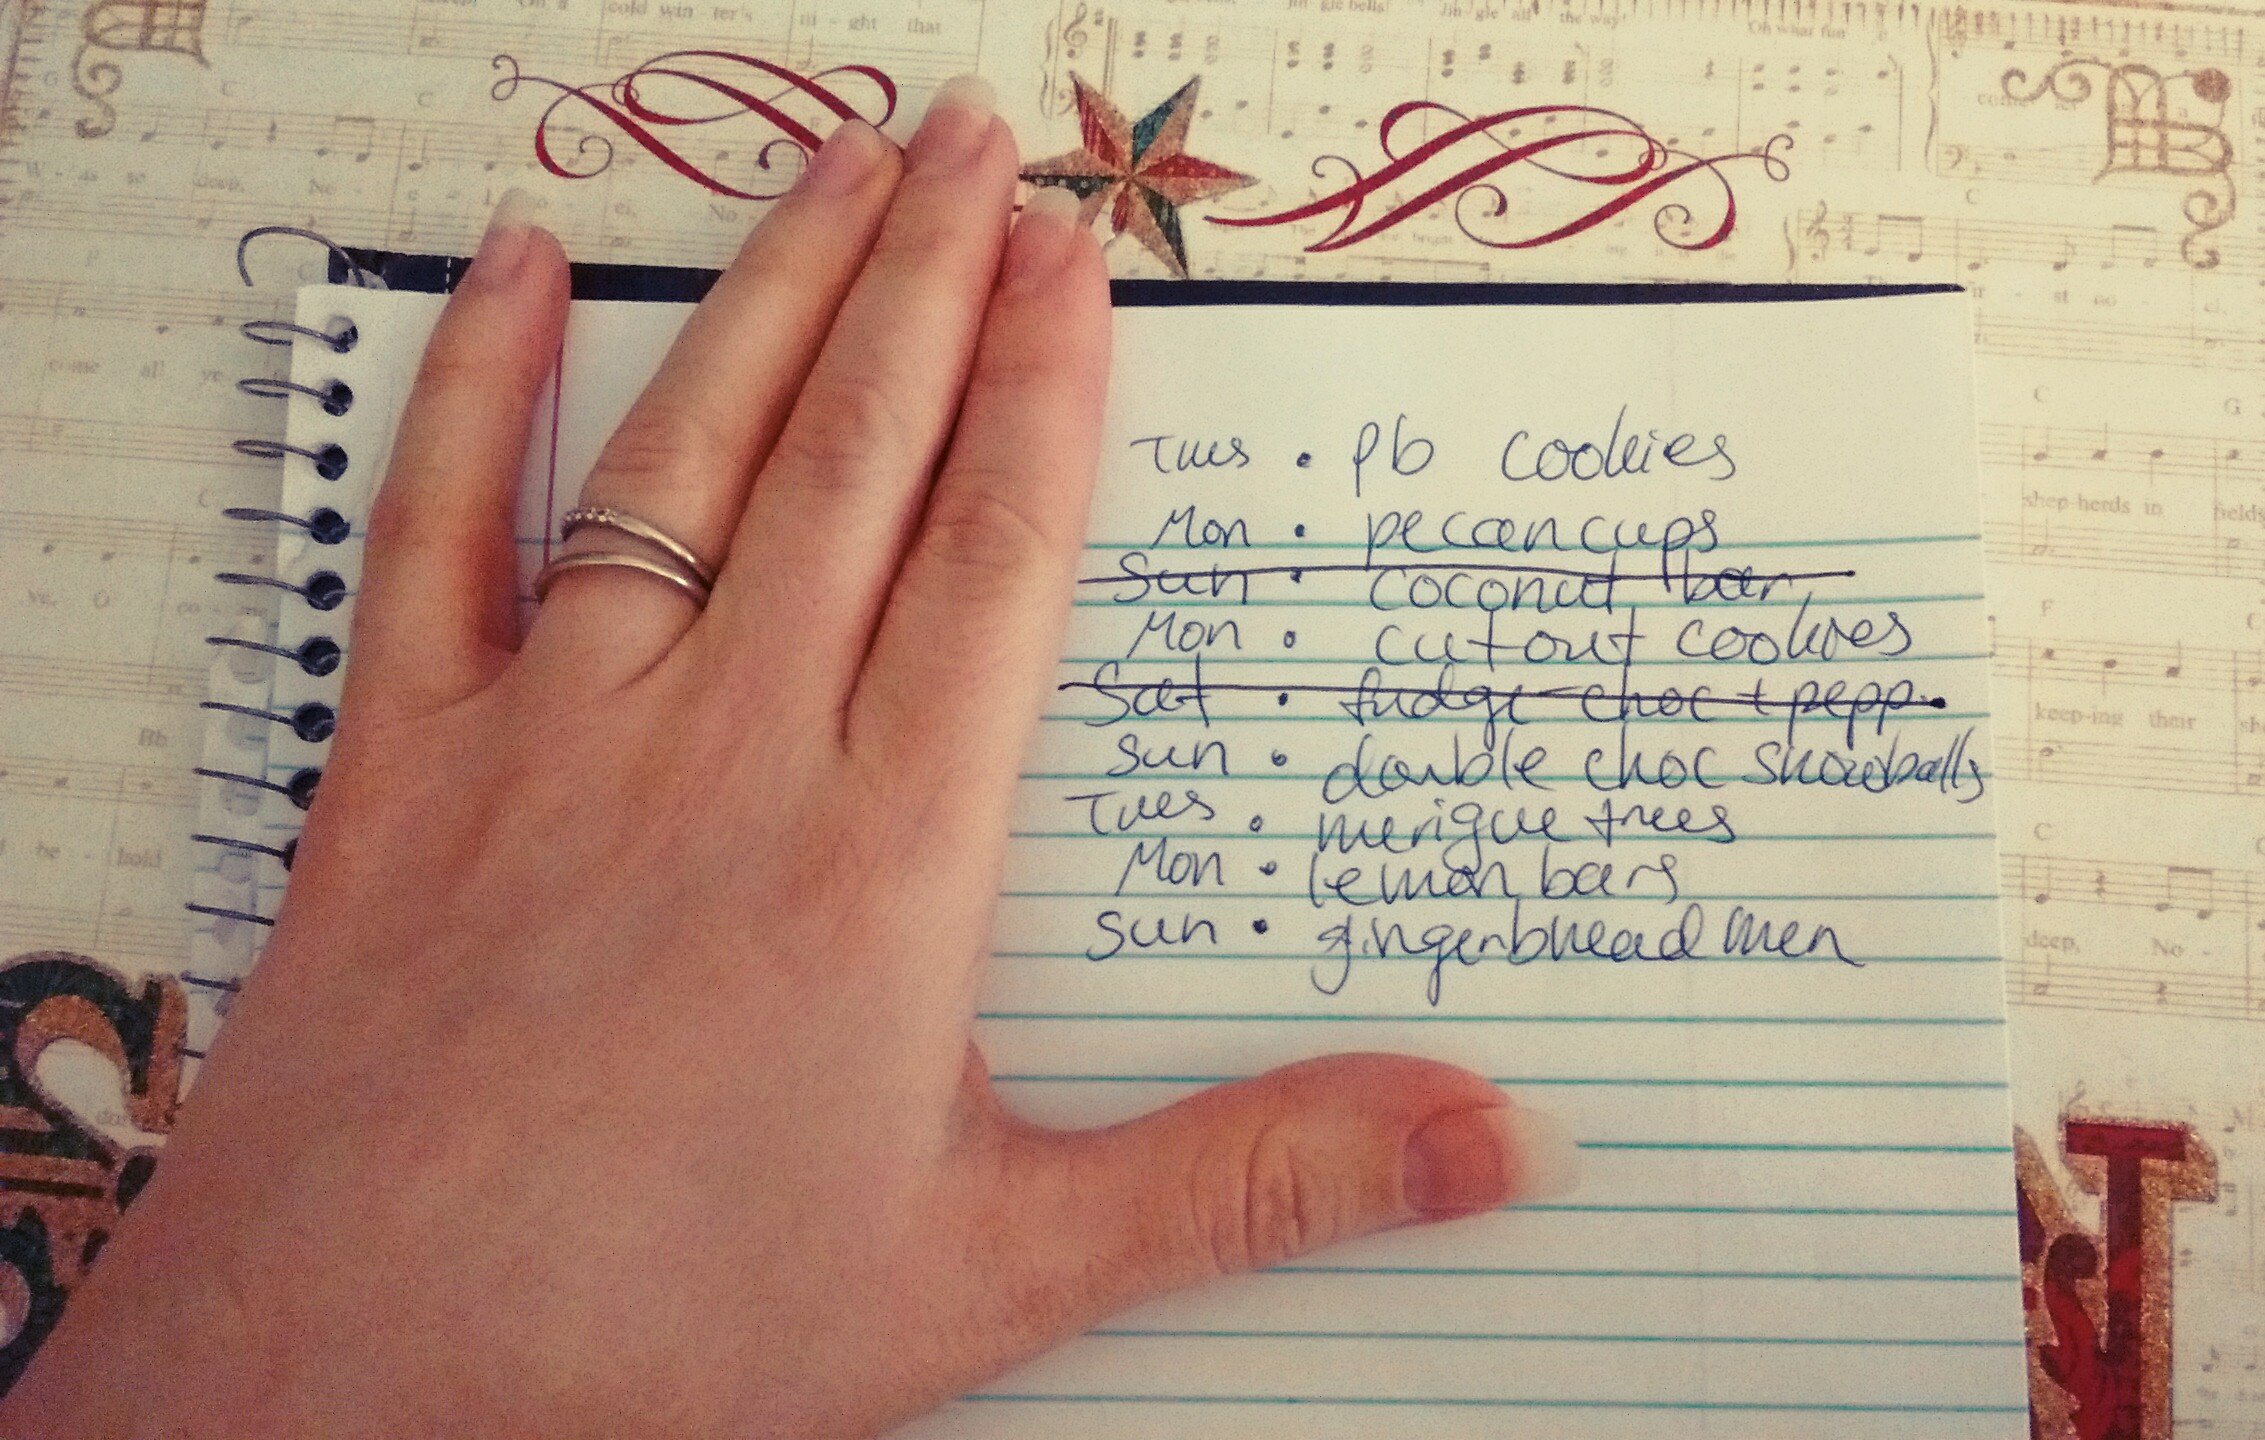 cold win - ter's ni - ght that
Jin - gle all the way!
Oh what fun
deep,
No -
come all ye
shep-herds in fields
keep-ing their
be - hold
deep, No -
Tues • pb cookies
Mon • pecan cups
Sun • coconut bar
Mon • cutout cookies
Sat • fudge choc + pepp.
Sun • double choc snowballs
Tues • merigue trees
Mon • lemon bars
Sun • gingerbread men